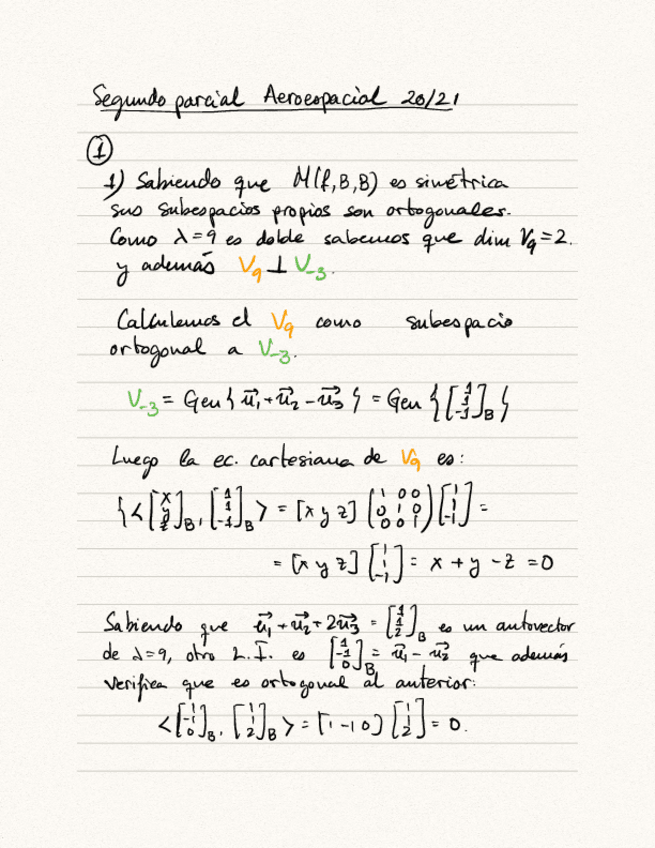 Segundo parcial Aeroespacial 20/21
①
1) Sabiendo que M(f,B,B) es simétrica
sus subespacios propios son ortogonales.
Como λ=9 es doble sabemos que dim V₉=2.
y además V₉ ⊥ V₋₃.
Calculemos el V₉ como subespacio
ortogonal a V₋₃.
V₋₃ = Gen{ u⃗₁+u⃗₂-u⃗₃ } = Gen { [1 1 -1]_B }
Luego la ec. cartesiana de V₉ es:
{ < [x y z]_B, [1 1 -1]_B > = [x y z] (1 0 0 0 1 0 0 0 1) [1 1 -1] =
= [x y z] [1 1 -1] = x + y - z = 0
Sabiendo que u⃗₁+u⃗₂+2u⃗₃ = [1 1 2]_B es un autovector
de λ=9, otro L.I. es [1 -1 0]_B = u⃗₁ - u⃗₂ que además
verifica que es ortogonal al anterior:
< [1 -1 0]_B, [1 1 2]_B > = [1 -1 0] [1 1 2] = 0.